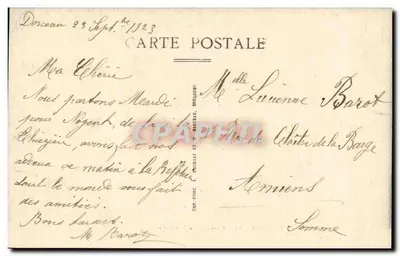 23 Sept.bre 1923
CARTE POSTALE
Ma Chérie
Nous partons Mardi
pour Nogent, de
avons fait nos
adieux ce matin à la
tout le monde vous fait
des amitiés.
Bons baisers.
M Barot
Melle Lucienne Barot
Rue du Cloître de la Barge
Amiens
Somme